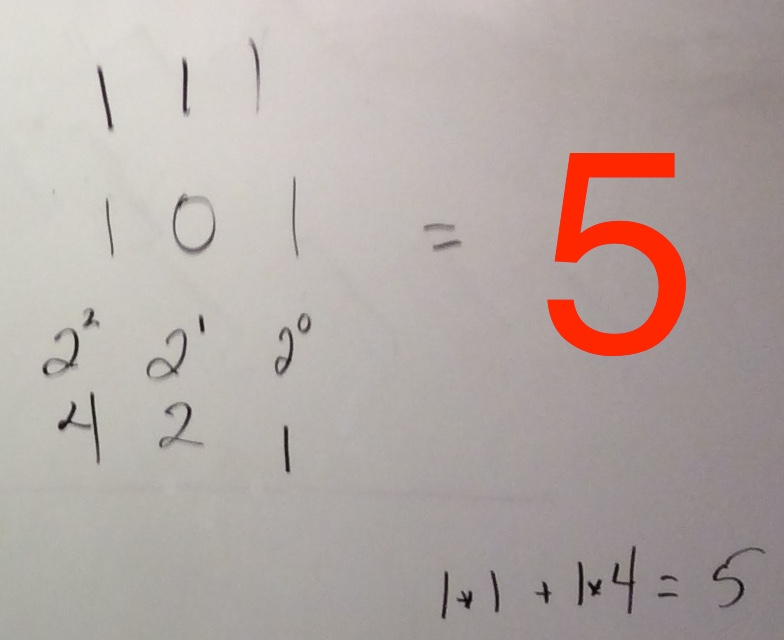 1 1 1
1 0 1 = 5
2² 2¹ 2⁰
4 2 1
1*1 + 1*4 = 5